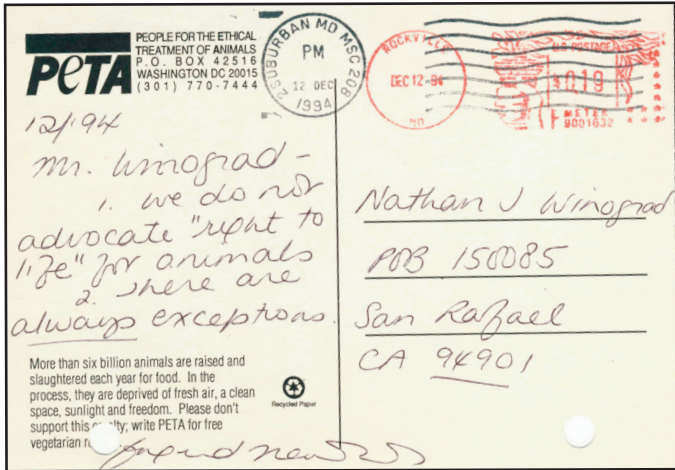 PETA
PEOPLE FOR THE ETHICAL
TREATMENT OF ANIMALS
P.O. BOX 42516
WASHINGTON DC 20015
(301) 770-7444
SUBURBAN MD MSC 208
PM
12 DEC
1994
ROCKVILLE
DEC 12-94
MD
U.S. POSTAGE
019
METER
9001632
12/94
Mr. Winograd -
1. we do not
advocate "right to
life" for animals
2. There are
always exceptions.
More than six billion animals are raised and
slaughtered each year for food. In the
process, they are deprived of fresh air, a clean
space, sunlight and freedom. Please don't
support this; write PETA for free
vegetarian
Recycled Paper
Nathan J Winograd
POB 150085
San Rafael
CA 94901